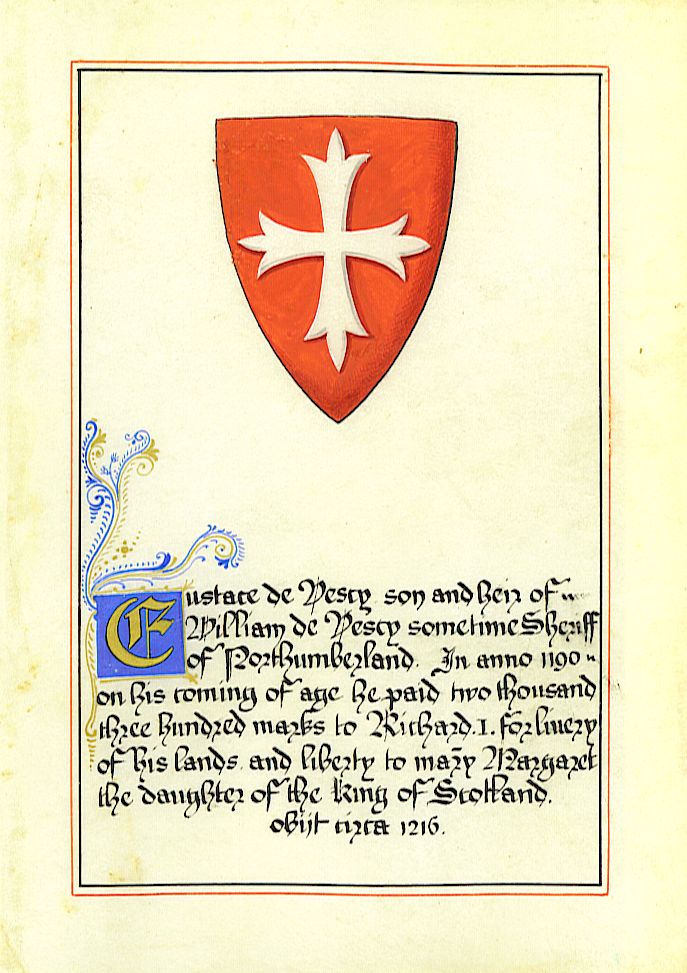 Eustace de Vescy, son and heir of
William de Vescy sometime Sheriff
of Northumberland. In anno 1190
on his coming of age he paid two thousand
three hundred marks to Richard.I. for livery
of his lands and liberty to mary Margaret
the daughter of the King of Scotland.
obijt circa 1216.